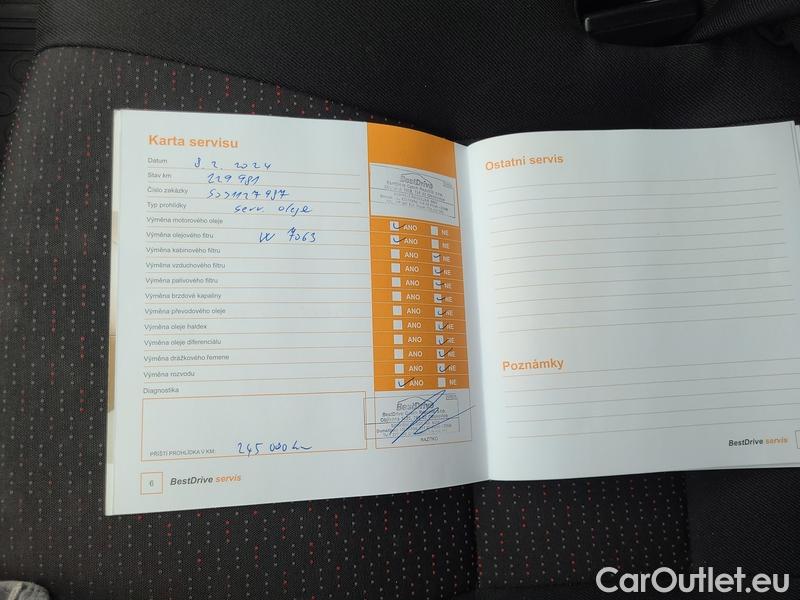 Karta servisu
Datum 8. 2. 2024
Stav km 229 981
Číslo zakázky
Typ prohlídky serv. oleje
Výměna motorového oleje ANO NE
Výměna olejového fitru W 7063 ANO NE
Výměna kabinového filtru ANO NE
Výměna vzduchového filtru ANO NE
Výměna palivového filtru ANO NE
Výměna brzdové kapaliny ANO NE
Výměna převodového oleje ANO NE
Výměna oleje haldex ANO NE
Výměna oleje diferenciálu ANO NE
Výměna drážkového řemene ANO NE
Výměna rozvodu ANO NE
Diagnostika ANO NE
BestDrive
BestDrive
RAZÍTKO
PŘÍŠTÍ PROHLÍDKA V KM: 245 000 km
6 BestDrive servis
Ostatní servis
Poznámky
BestDrive servis
CarOutlet.eu